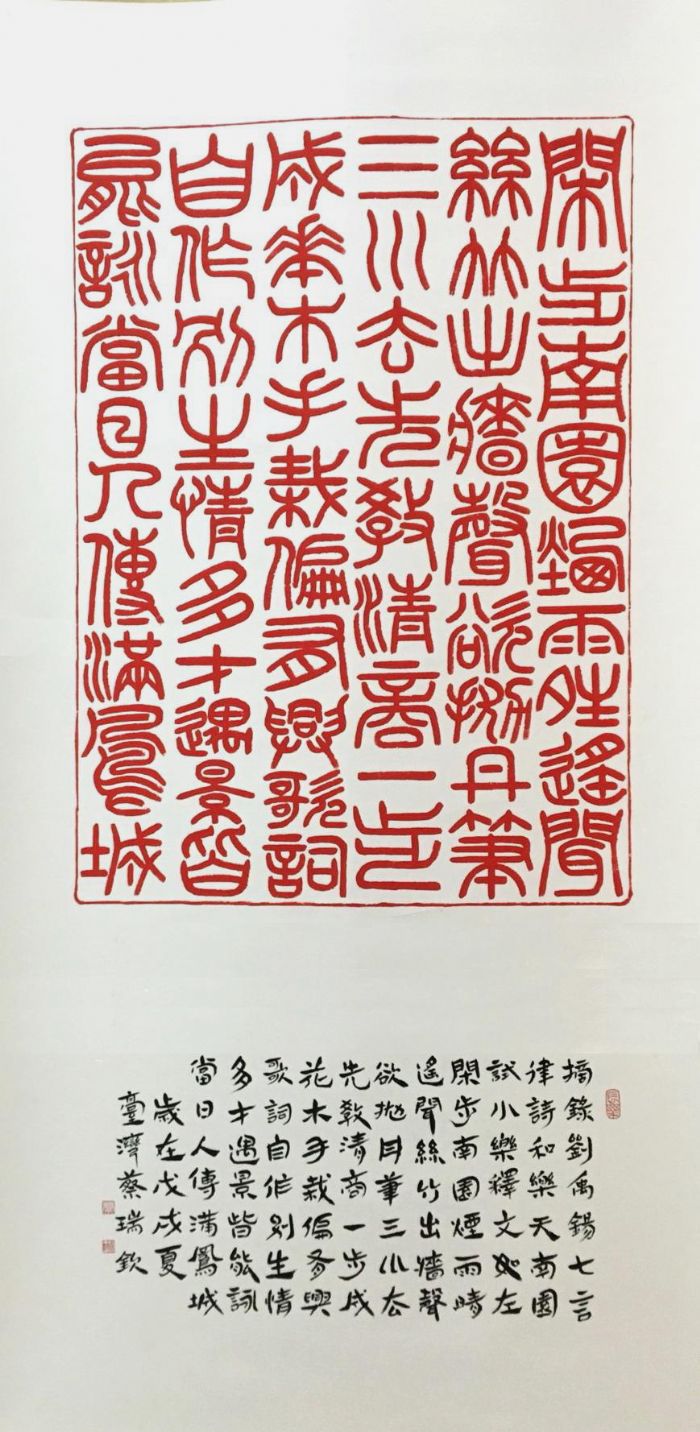 閑步南園煙雨晴遙聞
絲竹出牆聲欲拋丹筆
三川去先教清商一步
成花木手栽偏有興歌詞
自作別生情多才遇景皆
能詠當日人傳滿鳳城
摘錄劉禹錫七言
律詩和樂天南園
試小樂釋文如左
閑步南園煙雨晴
遙聞絲竹出牆聲
欲拋丹筆三川去
先教清商一步成
花木手栽偏有興
歌詞自作別生情
多才遇景皆能詠
當日人傳滿鳳城
歲在戊戌夏
臺灣蔡瑞欽